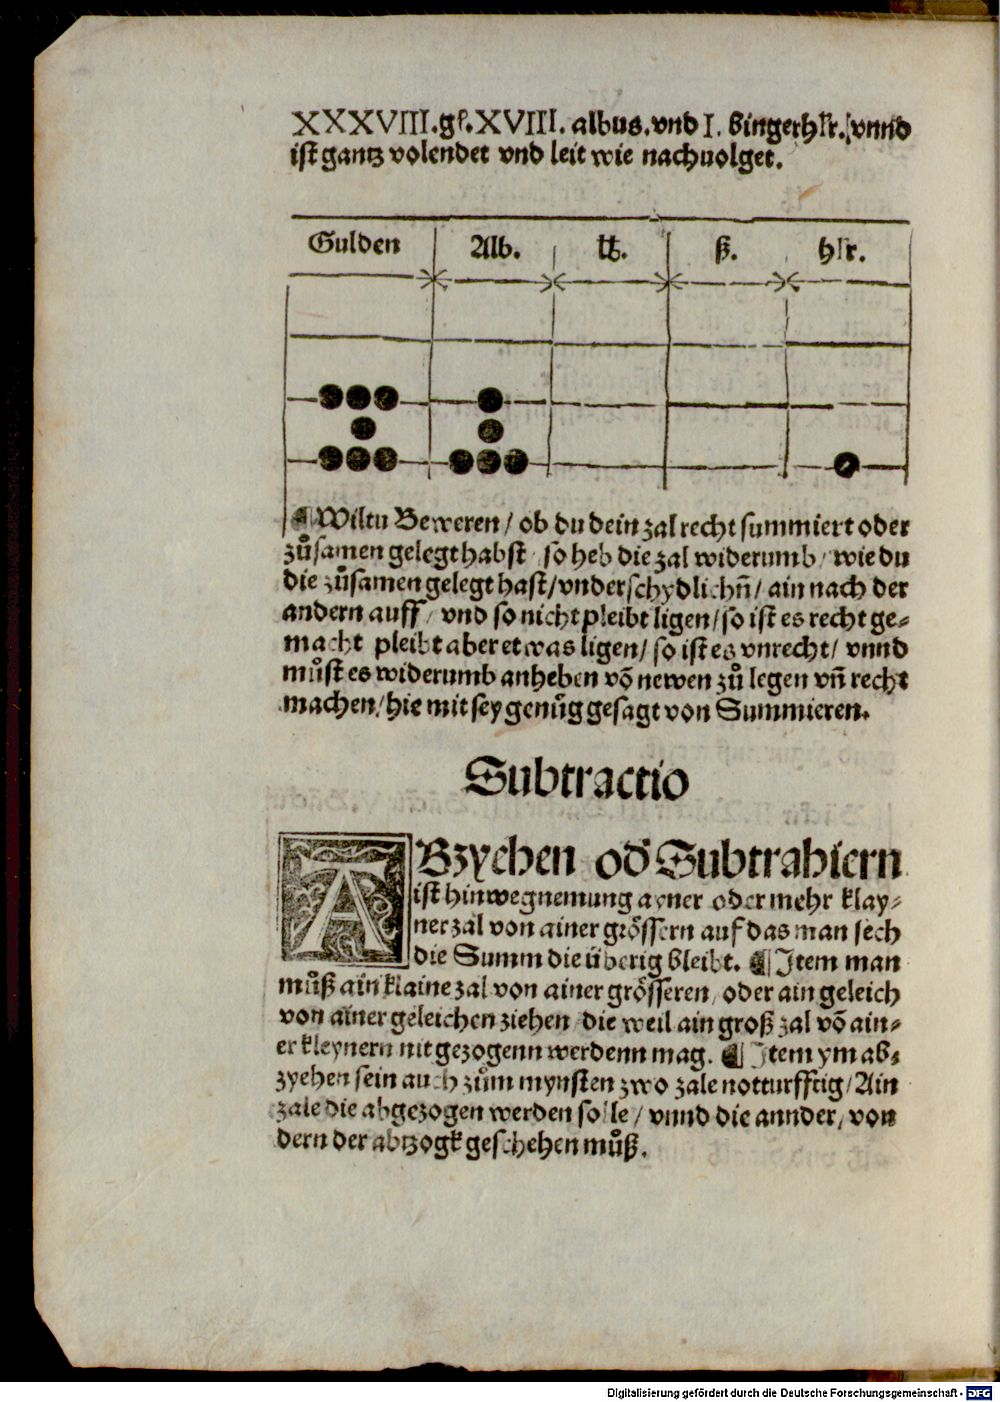 XXXVIII.gl.XVIII. albus.vnd I. Bingerhlr. vnnd
ist gantz volendet vnd leit wie nachuolget.
Gulden Alb. ß. hlr.
¶ Wiltu Beweren / ob du dein zal recht summiert oder
zůsamen gelegt habst so heb die zal widerumb / wie du
die zůsamen gelegt hast / vnderschydlichñ / ain nach der
andern auff / vnd so nicht pleibt ligen / so ist es recht ge-
macht pleibt aber etwas ligen / so ist es vnrecht / vnnd
můst es widerumb anheben võ newen zů legen vñ recht
machen / hie mit sey genůg gesagt von Summieren.
Subtractio
ABzyehen od Subtrahiern
ist hinwegnemung ayner oder mehr klay-
ner zal von ainer grössern auf das man sech
die Summ die überig bleibt. ¶ Item man
můß ain klaine zal von ainer grösseren / oder ain geleich
von ainer geleichen ziehen / die weil ain groß zal võ ain-
er kleynern nit gezogenn werdenn mag. ¶ Item ym ab-
zyehen sein auch zům mynsten zwo zale notturfftig / Ain
zale die abgezogen werden solle / vnnd die annder / von
dern der abtzogk geschehen můß.
Digitalisierung gefördert durch die Deutsche Forschungsgemeinschaft - DFG